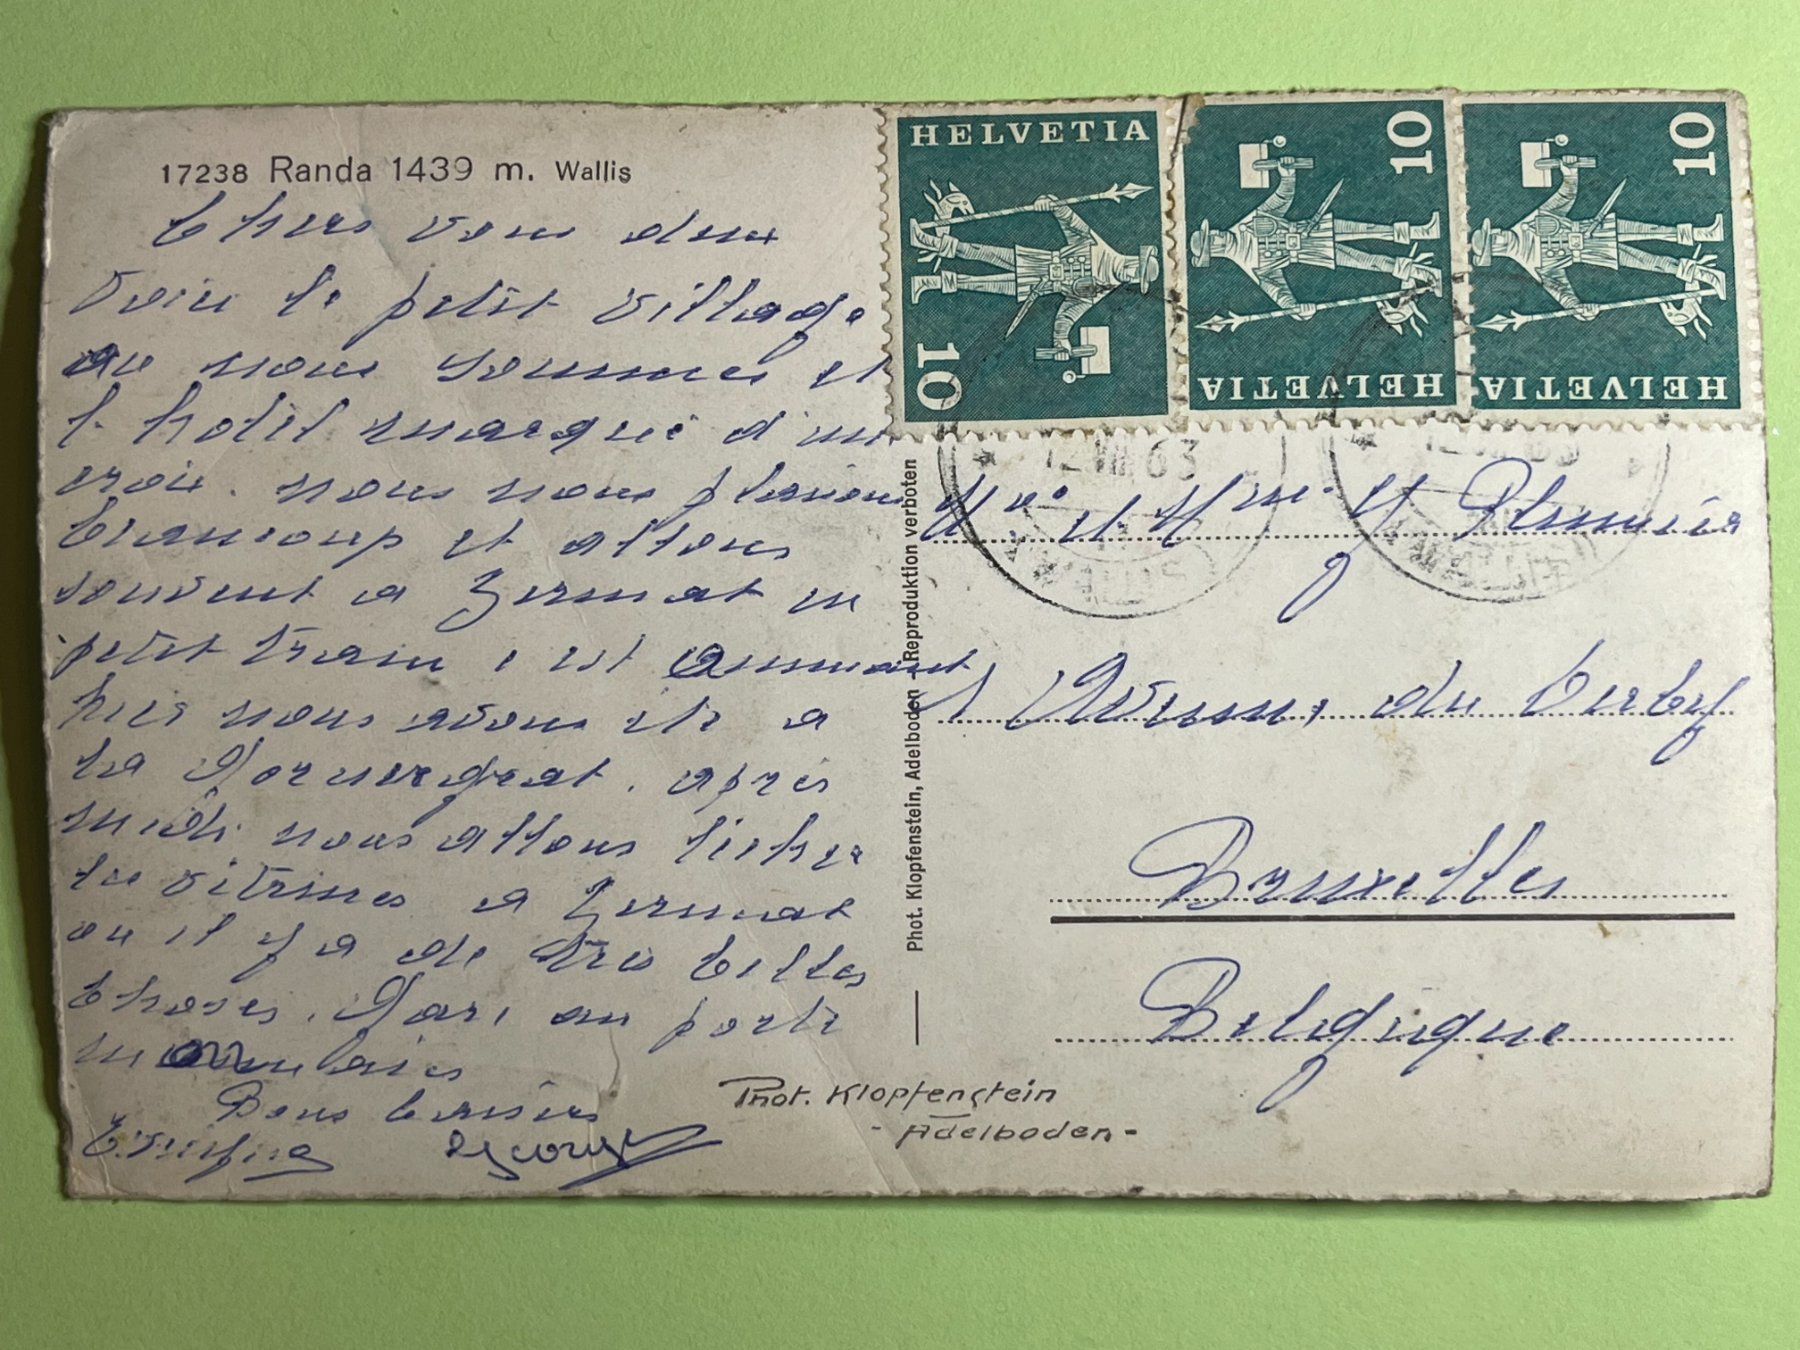 17238 Randa 1439 m. Wallis
Chers vous deux
Voici le petit village
où nous sommes et
l. hotel marqué d'une
croix. nous nous plaisons
beaucoup et allons
souvent a Zermat en
petit train, c est amusant
hier nous avons été a
la Gornergrat. après
midi nous allons lècher
les vitrines a Zermat
ou il y a de très belles
choses.
Bons baisers
George
HELVETIA
10
HELVETIA
10
HELVETIA
10
12.VIII.63
Mr. et Mme. J
1 Avenue, du Derby
Bruxelles
Belgique
Phot. Klopfenstein, Adelboden - Reproduktion verboten
Phot. Klopfenstein
- Adelboden -